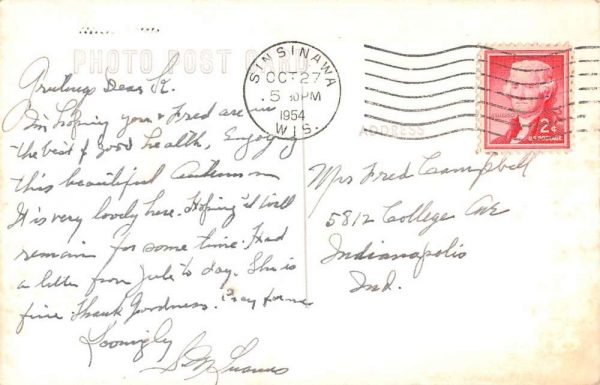 PHOTO POST CARD
Greetings Dear
I'm hoping you & Fred are in
the best of good health, Enjoying
this beautiful Autumn
It is very lovely here. Hoping it will
remain for some time. Had
a letter from Julie to day. She is
fine Thank Goodness. Pray for me
Lovingly
S.M.
SINSINAWA
OCT 27
5 30 PM
1954
WIS.
ADDRESS
2¢
U.S. POSTAGE
Mrs Fred Campbell
5812 College Ave
Indianapolis
Ind.